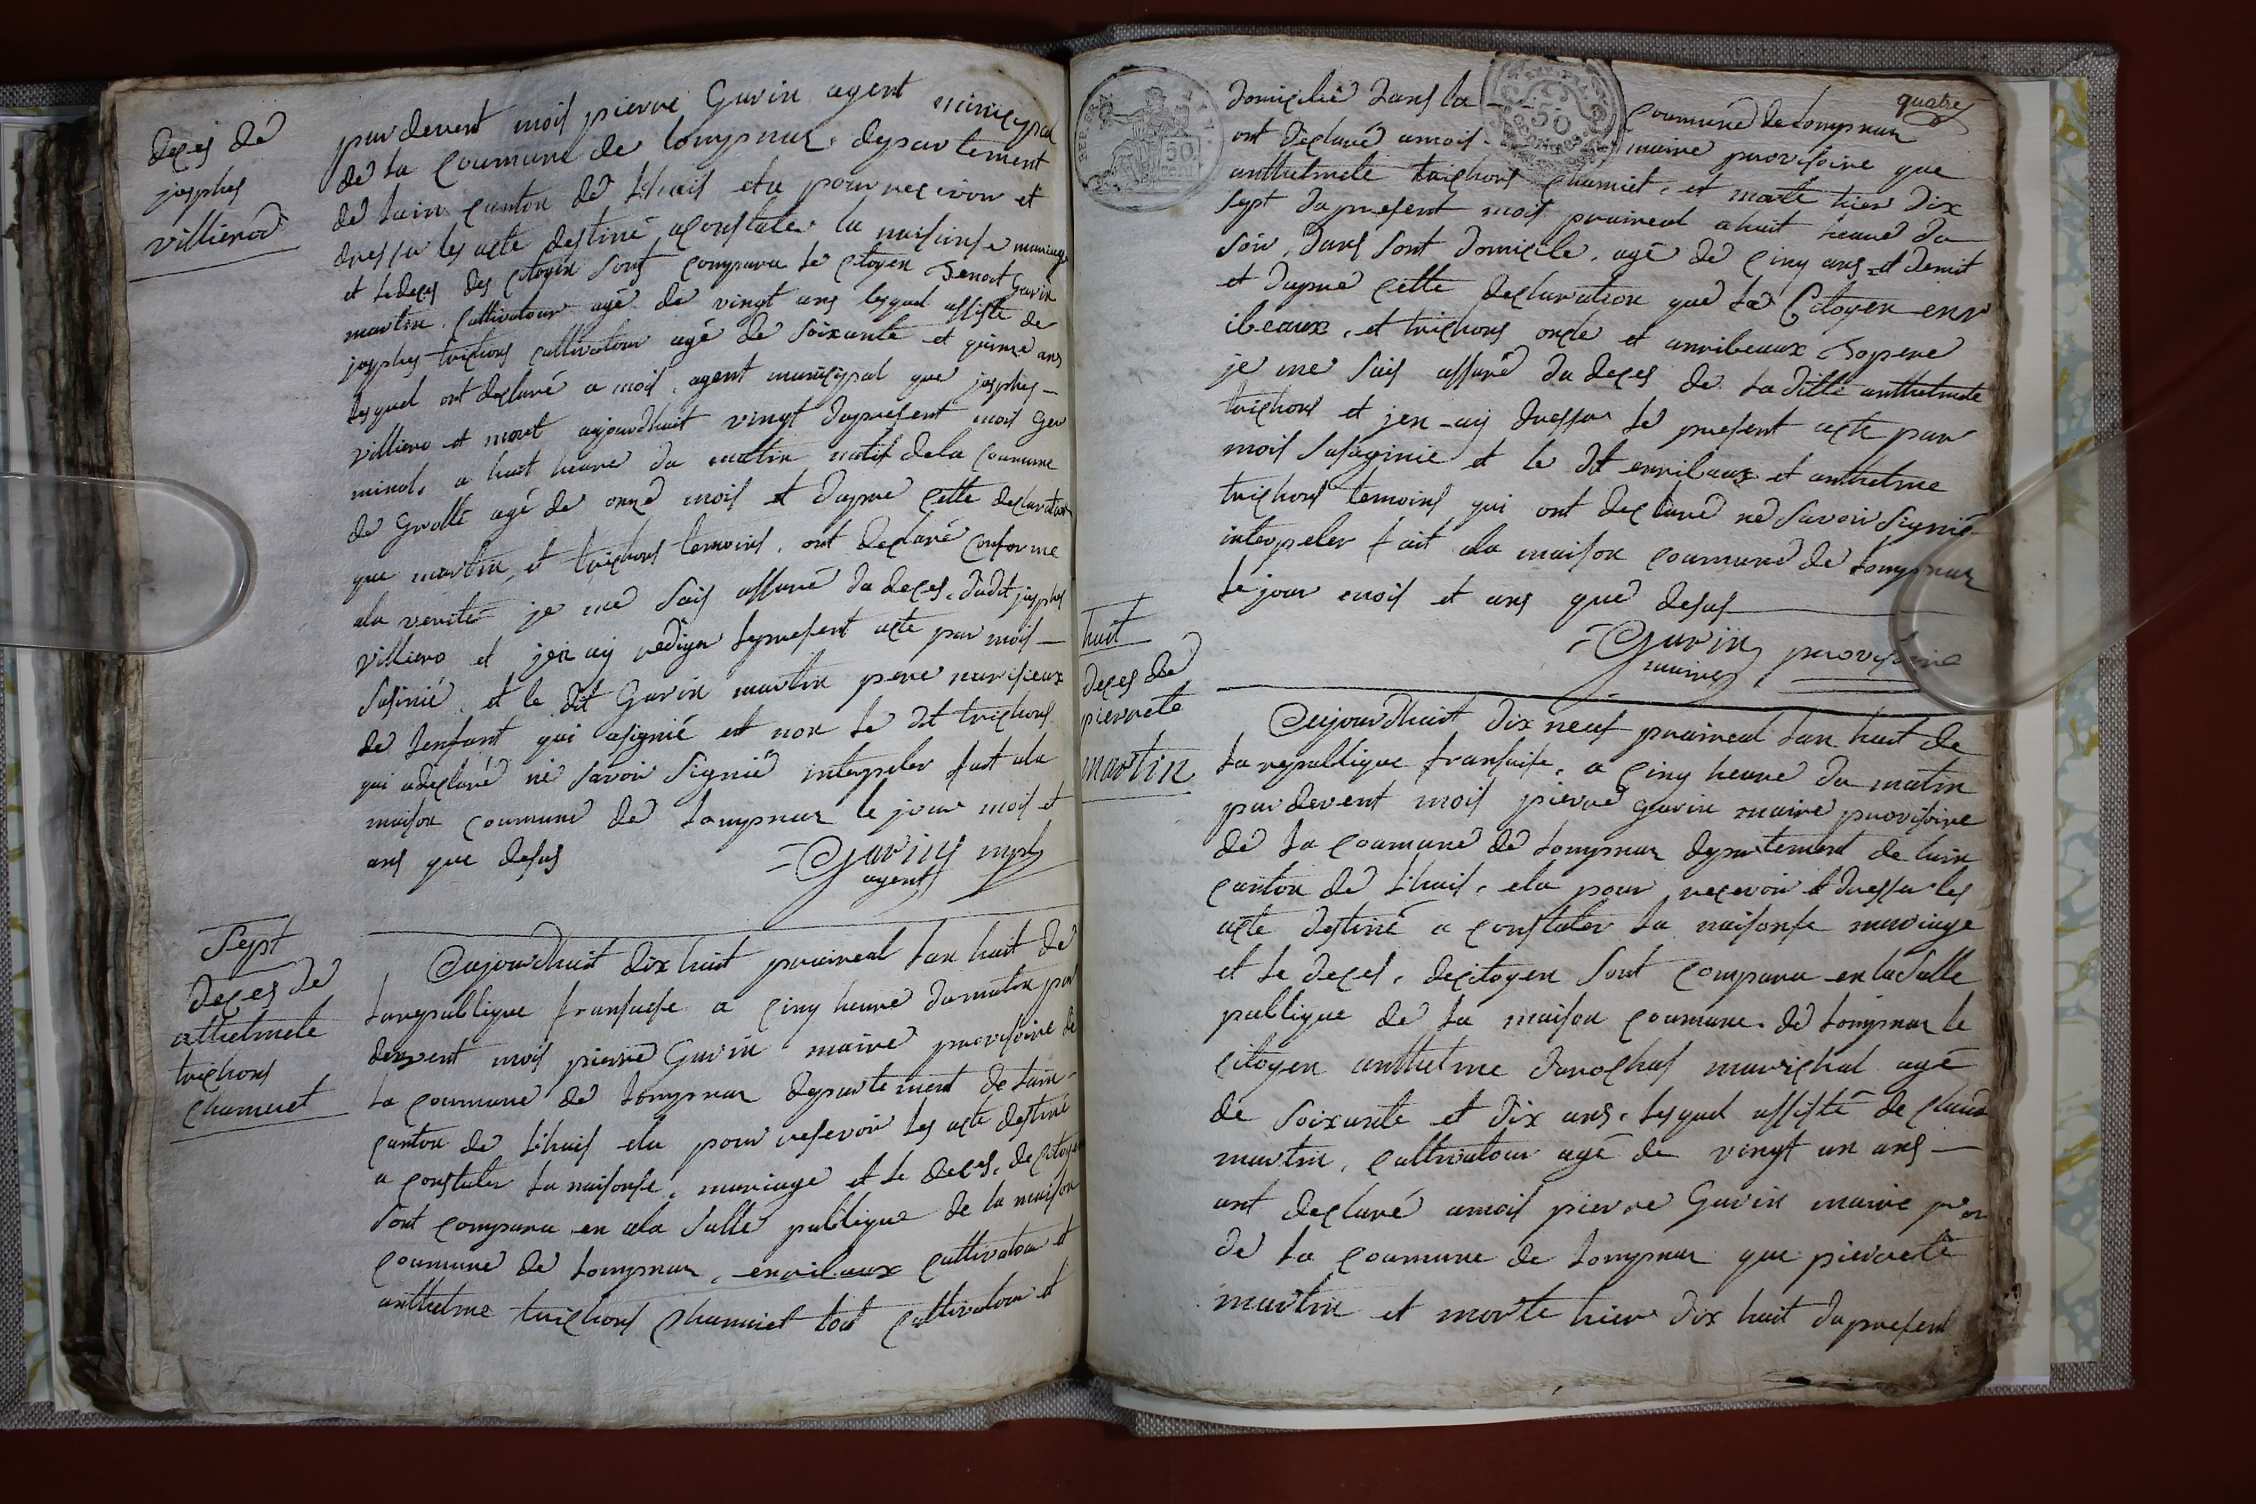 deces de
josphes
villierod
par devent mois pierre Gurin agent municypal
de la coumune de lompnas, departement
de lain canton de Lhuis elu pour recivoir et
dresser les acte destiné aconstater la naisense mariage
et le deces des citoyen sont comparu le citoyen Benoit Gurin
martin cultivatour agé de vingt ans lesquel assiste de
josphes trichons cultivatour agé de soixante et quinze ans
lesquel ont declaré a mois agent municypal que josphes
villiero et mort aujourdhuit vingt dupresent mois ger
minal a huit heure du matin natif dela coumune
de Grolle agé de onze mois et dapre cette declaration
que martin et trichons temoins ont declaré conforme
ala verité je me suis assuré du deces dudit josphes
villiero et jen aij rediger lepresent acte par mois
sosinié et le dit Gurin martin pere nurisieux
de lenfant qui asignié et non le dit trichons
qui adeclaré ne savoir signié interpeler fait ala
maison coumune de lompnas le jour mois et
ans que desus
Gurin mpl
agent
Sept
deces de
athelmete
trichons
chamiet
Aujourdhuit dix huit praireal lan huit de
larepublique fransaise a cinq heure dumatin par
devent mois pierre Gurin maire provisoire de
la coumune de lompnas departement de lain
canton de Lhuis elu pour resevoir les acte destiné
a constater la naisonse, mariage et le deces, de citoyen
sont comparu en ala salle publique de la maison
coumune de lompnas, enrilaux cultivatour et
anthelme trichons chamiet tout cultivatour et
quatre
domicilié dans la coumune de lompnas
ont declaré amois maire provisoire que
anthelmete trichons chamiet, et morte hier dix
sept dupresent mois praireal ahuit heure du
soir, dans sont domicile, agé de cinq ans et demit
et dapre cette declaration que le Citoyen enr
ibeaux, et trichons oncle et anribeaux Bopere
je me suis assuré du deces de laditte anthelmete
trichons et jen aij dresser le present acte par
mois sosignié et le dit enrilaux et anthelme
trichons temoins qui ont declaré ne savoir signié
interpeler fait ala maison coumune de lompnas
le jour mois et ans que desus
Gurin provisoire
maire
huit
deces de
pierrete
martin
Aujourdhuit dix neuf praireal lan huit de
la republique fransaise, a cinq heure du matin
par devent mois pierre Gurin maire provisoire
de la coumune de lompnas departement de lain
canton de Lhuis, elu pour recevoir et dresser les
acte destiné a constater la naisonse mariage
et le deces, decitoyen sont comparu en la salle
publique de la maison coumune de lompnas le
citoyen anthelme durochas marichal agé
de soixante et dix ans, lesquel assisté de claude
martin, cultivatour agé de vingt un ans
ont declaré amois pierre Gurin maire pro
de la coumune de lompnas que pierrete
martin et morte hier dix huit dupresent